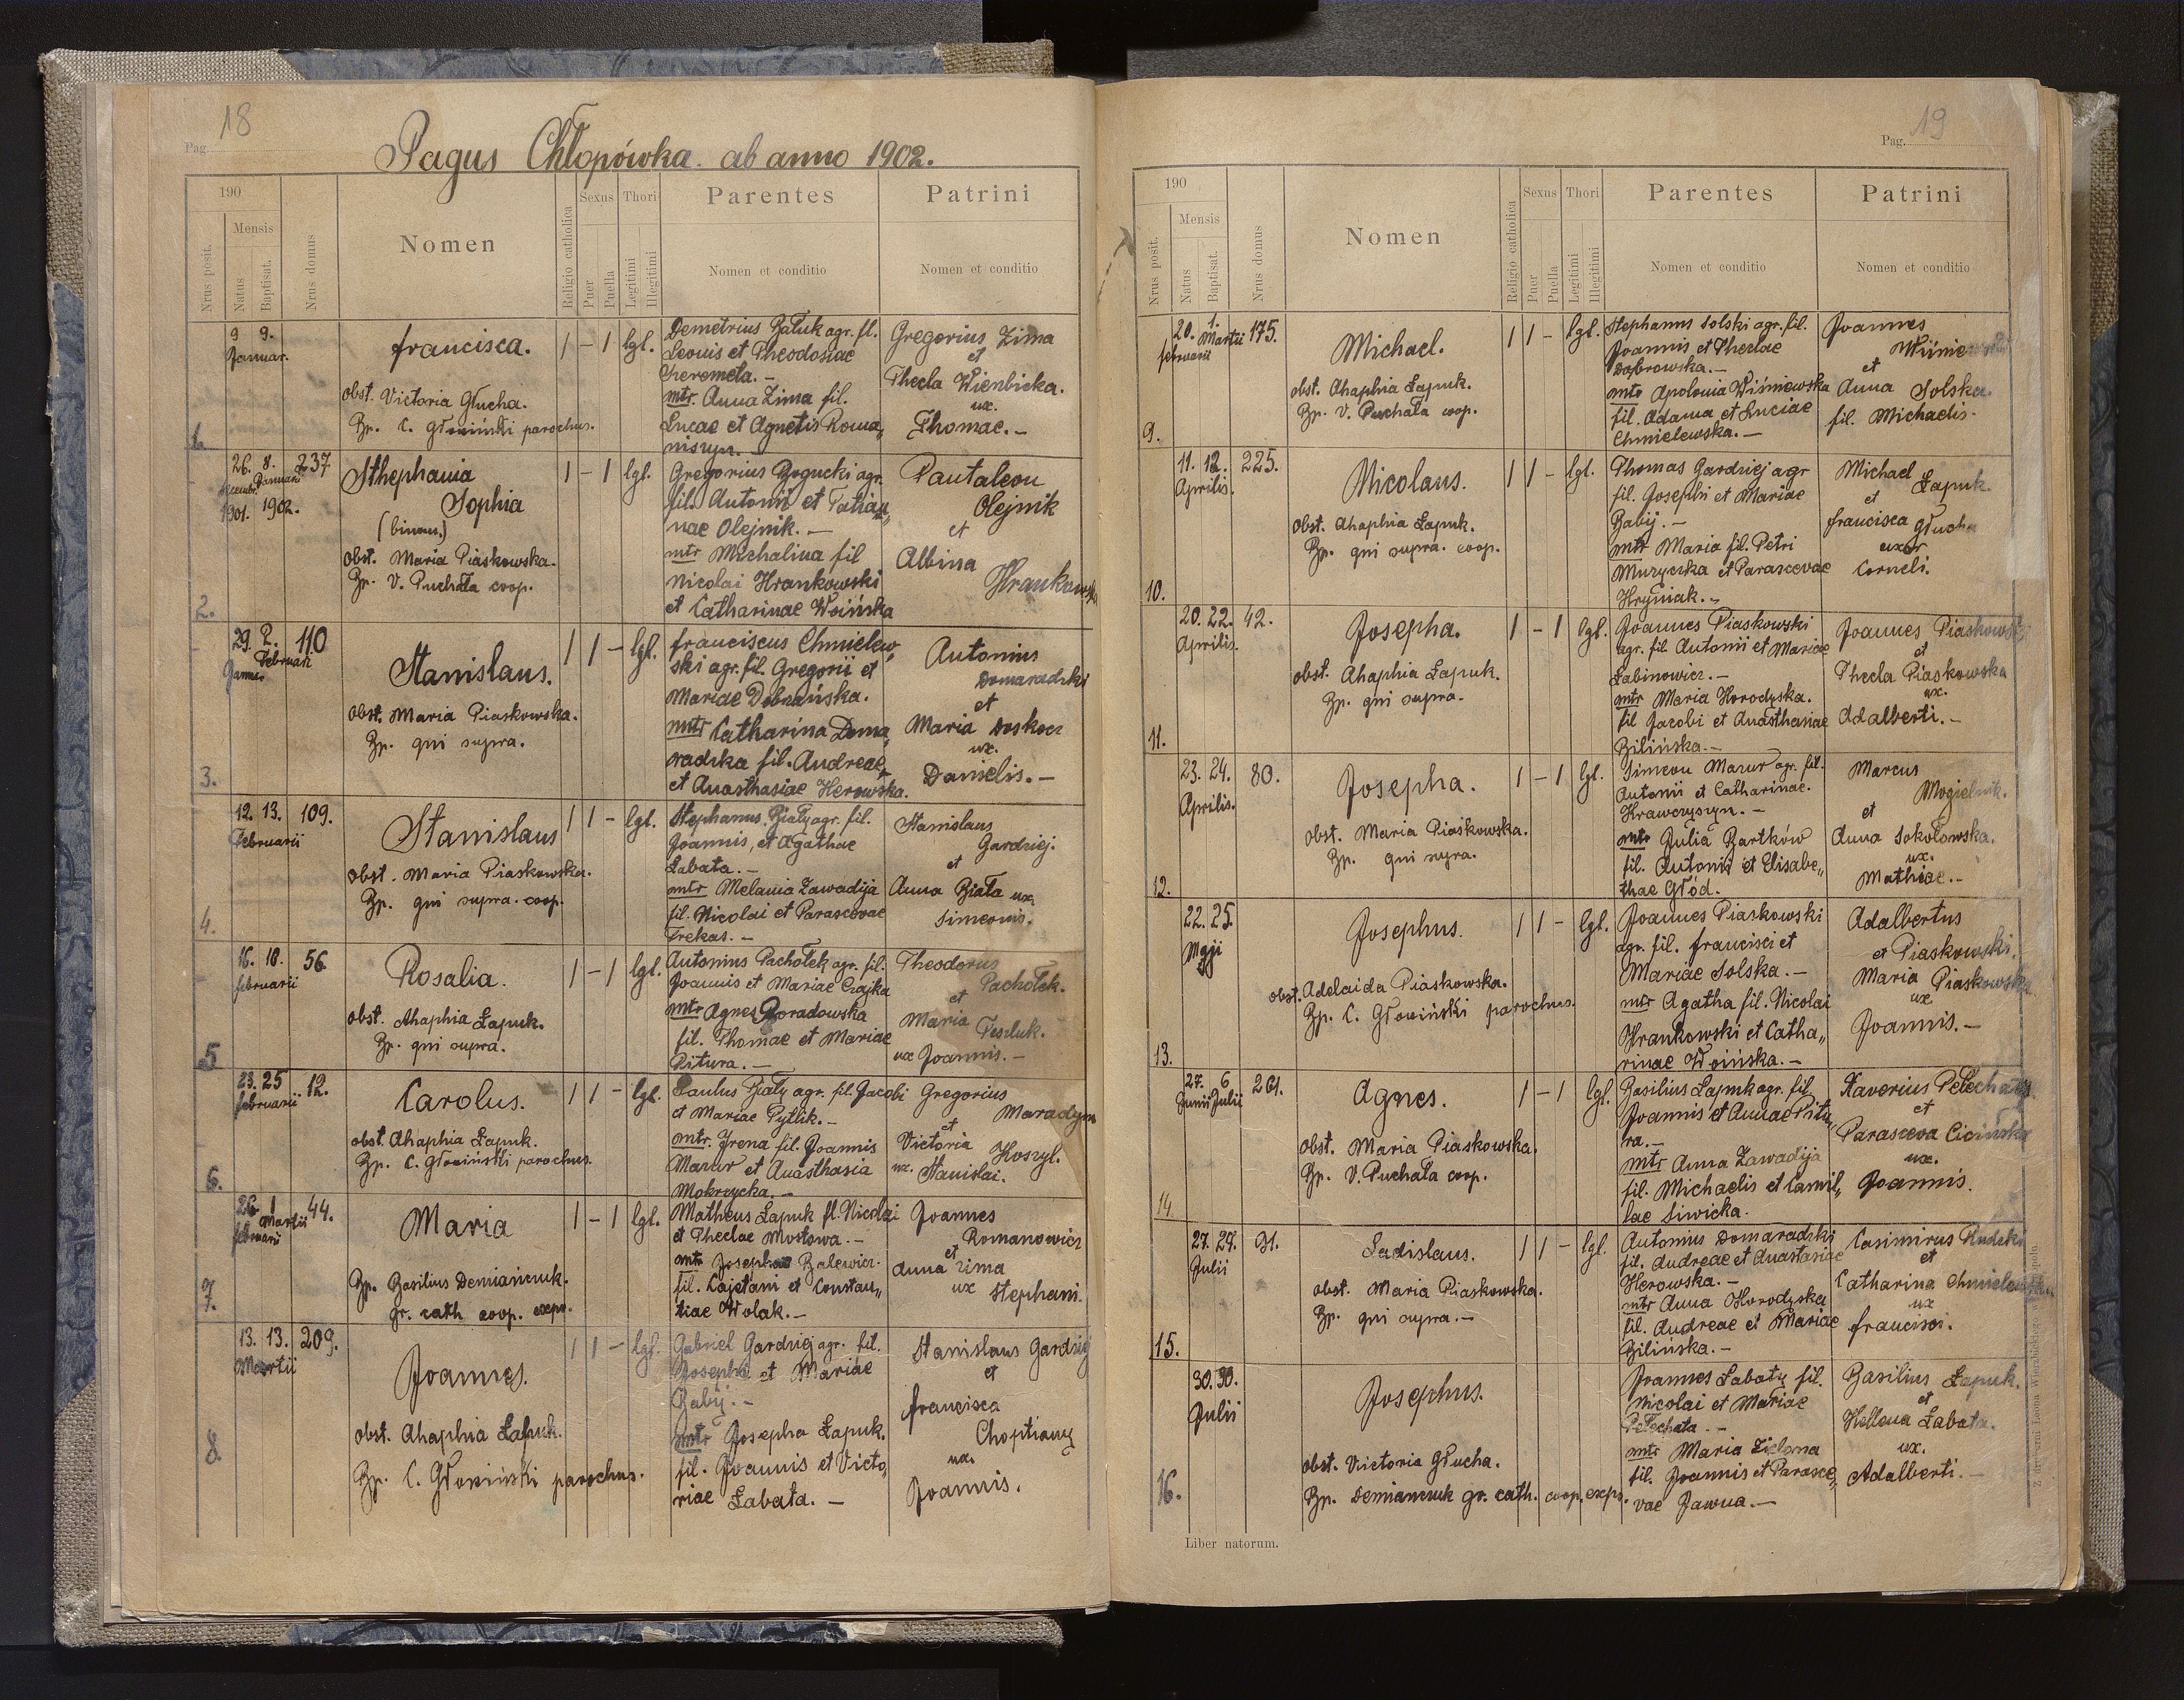 18
Pag.
Pagus Chłopówka ab anno 1902.
190
Mensis
Nrus posit.
Natus
Baptisat.
Nrus domus
Nomen
Religio catholica
Sexus
Puer
Puella
Thori
Legitimi
Illegitimi
Parentes
Nomen et conditio
Patrini
Nomen et conditio
1.
9 9.
Januar.
Francisca.
obst. Victoria Głucha.
Bp. C. Głowiński parochus.
1 - 1 lgl.
Demetrius Bałuk agr. fl.
Leonis et Theodosiae
Cheremeta. -
mtr. Anna Zima fil.
Lucae et Agnetis Roma„
niszyn. -
Gregorius Zima
et
Thecla Wienbicka.
ux.
Thomae. -
2.
26. 8. 237
Decembr. Januarii
1901. 1902.
Sthephania
Sophia
(binom.)
obst. Maria Piaskowska.
Bp. V. Puchała coop.
1 - 1 lgl.
Gregorius Bogucki agr.
fil. Antonii et Tatian„
nae Olejnik. -
mtr Michalina fil
Nicolai Hrankowski
et Catharinae Woińska
Pantaleon
Olejnik
et
Albina
Hrankowska
3.
29. 2. 110
Februarii
Stanislaus.
obst. Maria Piaskowska.
Bp. qui supra.
1 1 - lgl.
Franciscus Chmielew„
ski agr. fil. Gregorii et
Mariae Dobrańska.
mtr Catharina Doma„
radzka fil. Andreae
et Anasthasiae Herowska.
Antonius
Domaradzki
et
Maria Doskocz
ux.
Danielis. -
4.
12. 13. 109.
Februarii
Stanislaus
obst. Maria Piaskowska.
Bp. qui supra. coop.
1 1 - lgl.
Stephanus Biały agr. fil.
Joannis, et Agathae
Łabata. -
mtr Melania Zawadija
fil. Nicolai et Parascevae
Trekas. -
Stanislaus
Gardziej.
et
Anna Biała ux.
Simeonis.
5
16. 18. 56.
Februarii
Rosalia.
obst. Ahaphia Łapuk.
Bp. qui supra.
1 - 1 lgl.
Antonius Pachołek agr. fil.
Joannis et Mariae Czajka
mtr Agnes Boradowska
fil. Thomae et Mariae
Pitura. -
Theodorus
Pachołek.
et
Maria Teszluk.
ux Joannis. -
6.
23. 25 12.
Februarii
Carolus.
obst. Ahaphia Łapuk.
Bp. C. Głowiński parochus.
1 1 - lgl.
Paulus Biały agr. fil. Jacobi
et Mariae Pytlik. -
mtr. Irena fil. Joannis
Mazur et Anasthasia
Mokrzycka. -
Gregorius
Maradyn
et
Victoria Koszyl.
ux. Stanislai.
7.
26 1 44.
Februarii Martii
Maria
Bp. Basilius Demiańczuk.
gr. cath coop. exps.
1 - 1 lgl.
Matheus Łapuk fl. Nicolai
et Theclae Mostowa. -
mtr Josepha Balewicz.
fil. Cajetani et Constan„
tiae Wolak. -
Joannes
Romanowicz
et
Anna Zima
ux Stephani.
8.
13. 13. 209.
Martii
Joannes.
obst. Ahaphia Łapuk.
Bp. C. Głowiński parochus.
1 1 - lgl.
Gabriel Gardziej agr. fil.
Josephi et Mariae
Babij. -
mtr Josepha Łapuk.
fil. Joannis et Victo„
riae Łabata. -
Stanislaus Gardziej
et
Francisca
Choptiany
ux.
Joannis.
19
Pag.
190
Mensis
Nrus posit.
Natus
Baptisat.
Nrus domus
Nomen
Religio catholica
Sexus
Puer
Puella
Thori
Legitimi
Illegitimi
Parentes
Nomen et conditio
Patrini
Nomen et conditio
9.
20. 1. 175.
Februarii Martii
Michael.
obst. Ahaphia Łapuk.
Bp. V. Puchała coop.
1 1 - lgl.
Stephanus Solski agr. fil.
Joannis et Theclae
Dąbrowska. -
mtr Apolonia Wiśniewska
fil. Adama et Luciae
Chmielewska. -
Joannes
et
Anna Solska.
fil. Michaelis.
10.
11. 12. 225.
Aprilis.
Nicolaus.
obst. Ahaphia Łapuk.
Bp. qui supra. coop.
1 1 - lgl.
Thomas Gardziej agr
fil. Josephi et Mariae
Babij. -
mtr Maria fil. Petri
Muzyczka et Parascevae
Hryniak. -
Michael
Łapuk.
et
Francisca Głucha
uxor
Corneli.
11.
20. 22. 42.
Aprilis.
Josepha.
obst. Ahaphia Łapuk.
Bp. qui supra.
1 - 1 lgl.
Joannes Piaskowski
agr. fil Antonii et Mariae
Łabinowicz. -
mtr Maria Horodyska.
fil Jacobi et Anasthasiae
Bilińska. -
Joannes Piaskowski
et
Thecla Piaskowska
ux.
Adalberti. -
12.
23. 24. 80.
Aprilis.
Josepha.
obst. Maria Piaskowska.
Bp. qui supra.
1 - 1 lgl.
Simeon Mazur agr. fil.
Antonii et Catharinae.
Krawczyszyn. -
mtr Julia Bartków
fil. Antonii et Elisabe„
thae Głód.
Marcus
Mogielnik.
et
Anna Sokołowska.
ux.
Mathiae. -
13.
22. 25.
Maji
Josephus.
obst. Adelaida Piaskowska.
Bp. C. Głowiński parochus.
1 1 - lgl.
Joannes Piaskowski
agr. fil. Francisci et
Mariae Solska. -
mtr Agatha fil. Nicolai
Hrankowski et Catha„
rinae Woińska. -
Adalbertus
et Piaskowski.
Maria Piaskowska
ux
Joannis. -
14.
27. 6 261.
Junii Julii
Agnes.
obst. Maria Piaskowska.
Bp. V. Puchała coop.
1 - 1 lgl.
Basilius Łapuk agr. fil
Joannis et Annae Pitu„
ra. -
mtr Anna Zawadija
fil. Michaelis et Camil„
lae Siwicka.
Xaverius Pełechaty.
et
Parasceva Cicińska
ux.
Joannis.
15.
27. 29. 31.
Julii
Ladislaus.
obst. Maria Piaskowska.
Bp. qui supra. -
1 1 - lgl.
Antonius Domaradzki
fil. Andreae et Anastasiae
Herowska. -
mtr Anna Horodyska
fil. Andreae et Mariae
Bilińska. -
Casimirus Rudzki
et
Catharina
ux
Francisci.
16.
30. 30.
Julii
Josephus.
obst. Victoria Głucha.
Bp. Demianczuk gr. cath. coop. exps.
Joannes Łabaty fil.
Nicolai et Mariae
Pełechata. -
mtr Maria Zielona
fil. Joannis et Parasce„
vae Jawna. -
Basilius Łapuk.
et
Hellena Łabata.
ux.
Adalberti. -
Liber natorum.